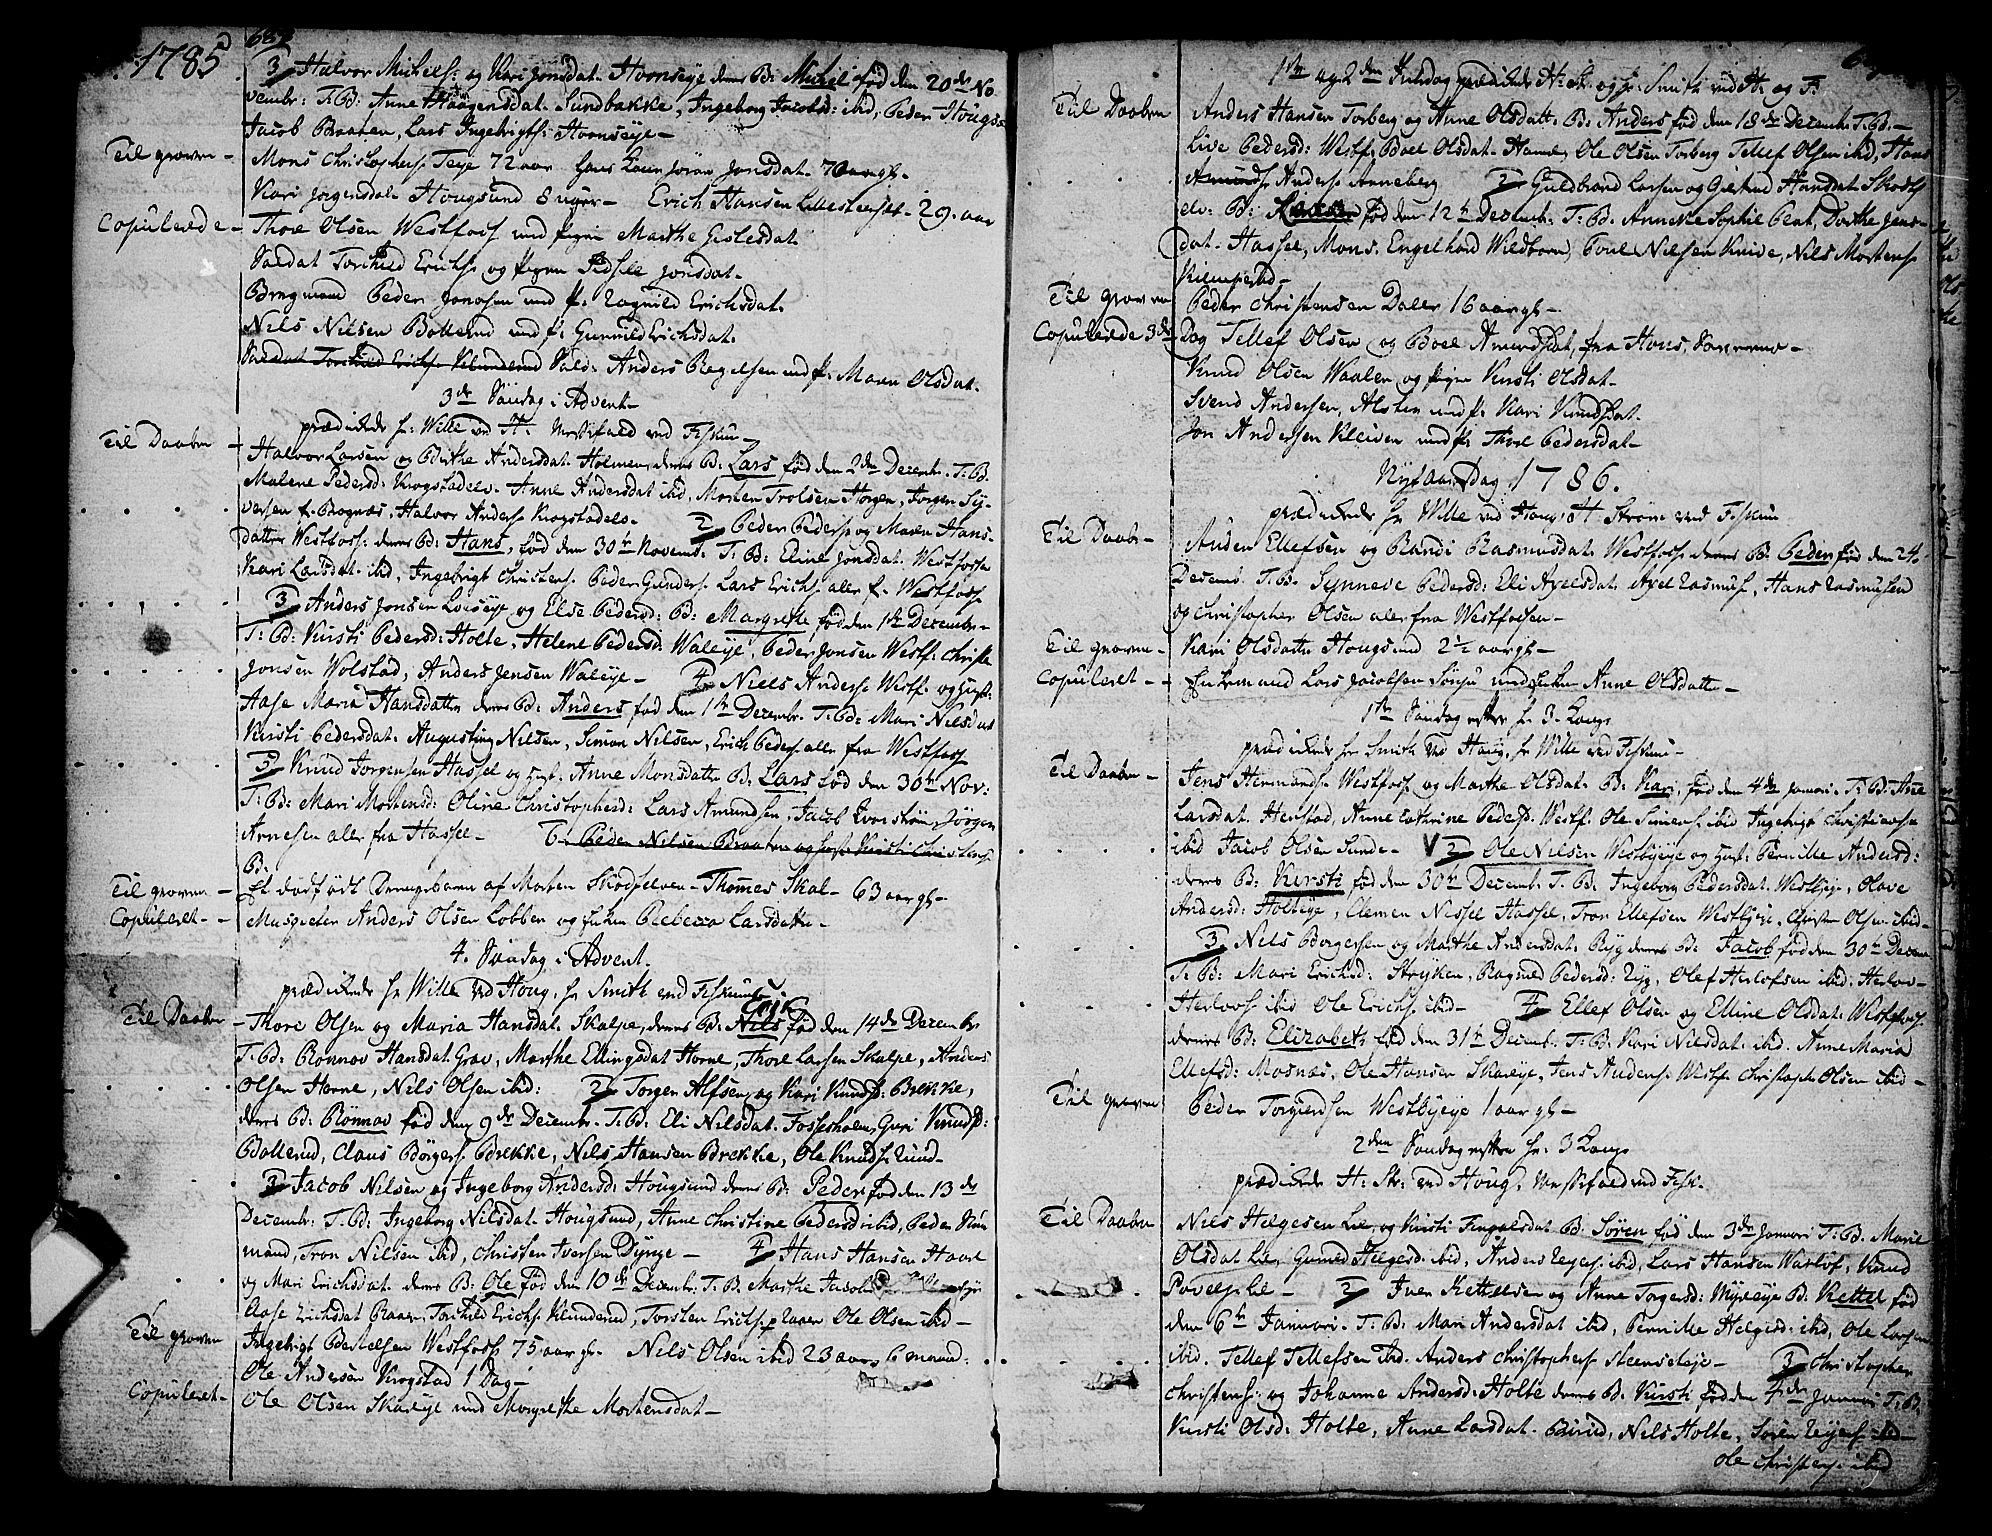 1785
688
3 Halvor Michels: og Kari Jonsdat. Hornseÿe deres B: Michel fød den 20de No
vembr: T: B: Anne Haagensdat. Sundbakke, Ingeborg Jacobsd: ibid, Peder Hougs
Jacob Braaten, Lars Ingebrigts: Hornseÿe
Til graven
Mons Christophers. Teÿe 72 aar Jonsdat. 70 aar gl.
Kari Jorgensdat Hougsund 8 uger Erich Hansen 29 aar
Copulerede
Thore Olsen Westfoss med pigen Marthe Gislesdat
Soldat Torchild Erichs. og pigen Sidsele Jonsdat
Bergmand Peder Jonasen med p. Ragnild Erichsdat.
Nils Nilsen Bollerud med p: Gunnild Erichsdat.
Soldat Torchild Erichs. Klunderud Sold: Anders med p: Maren Olsdat.
3de Søndag i Advent
prædikede hr Wille ved H. ved Fiskum
Til Daaben
Halvor Larsen og Birthe Andersdat. Holmen, deres B: Lars fød den 2den Decembr. T: B:
Malene Pedersd: Krogstadelv. Anne Andersdat ibid, Morten Trolsen Horgen, Jorgen Sÿ-
versen f. Bragnæs, Halvor Anders. Krogstadelv. 2 Peder Peders. og Maren Hans-
datter Westfoss: deres B: Hans, fød den 30te Novemb: T: B: Eline Jonsdat. Westfoss
Kari Larsdat. ibid, Ingebrigt Christens. Peder Gunders. Lars Erichs. alle f. Westfoss
3 Anders Jonsen Loeseÿe og Else Pedersd: B: Margrethe fød den 1te December
T: B: Kirsti Pedersd: Holte, Helene Pedersd. Waleÿe, Peder Jonsen Westf: Christe
Jonsen Wolstad, Anders Jensen Waleÿe 4 Niels Anders. Westf. og hust:
Aase Maria Hansdatter deres B: Anders fød den 1te Decembr. T: B: Mari Nilsdat
Kirsti Pedersdat. Augusting Nilsen, Simon Nilsen, Erich Peders. alle fra Westfoss
5 Knud Jorgensen Hassel og hust: Anne Monsdatter B: Lars fød den 30te Nov:
T: B: Mari Mortensd: Oline Christophersd: Lars Amundsen, Jacob Jorgen
Arnesen alle fra Hassel 6. Peder Nilsen Braaten og hust. Kirsti Christens
B:
Til graven
Et dødfødt Drengebarn af Morten Skodselven Thomes Skal 63 aar gl
Copuleret
Musqveter Anders Olsen Lobben og Enken Rebecca Larsdatter
4. Søndag i Advent.
prædikede hr Wille ved Houg, hr Smith ved Fiskum
Til Daaben
Erik
Thore Olsen og Maria Hansdat. Skalpe, deres B: Nils fød den 14de Decembr
T: B: Ronnov Hansdat Grav, Marthe Ellingsdat Horne, Thore Larsen Skalpe, Anders
Olsen Horne, Nils Olsen ibid: 2 Torger Alfsen og Kari Knudsd: Brekke,
deres B: Rönnov fød den 9de Decembr. T: B: Eli Nilsdat. Fossesholm, Guri Knudsd:
Bollerud, Claus Börgers. Brekke, Nils Hansen Brekke, Ole Knuds. Lund
3 Jacob Nilsen og Ingeborg Andersd: Hougsund deres B: Peder fød den 13de
Decembr: T: B: Ingeborg Nilsdat. Hougsund, Anne Christine Pedersd: ibid, Peder
mand, Tron Nilsen ibid, Christen Iversen Dÿnge 4 Hans Hansen Haare
og Mari Erichsdat. deres B: Ole fød den 10de Decembr: T: B: Marthe Jacobsd
Aase Erichsdat Torchild Erichs. Klunderud, Torsten Erichs. Ole Olsen ibid
Til graven
Ingebrigt Bertelsen Westfoss 75 aar gl. Nils Olsen ibid 23 aar 6 maand:
Ole Andersen Krogstad 1 Dag
Copuleret
Ole Olsen Skareÿe med Margrethe Mortensdat
1te og 2den Juledag prædikede H: St: og hr Smith ved H: og F:
Til Daaben
Anders Hansen Torberg og Anne Olsdatt: B: Anders fød den 18de Decemb: T: B:
Live Pedersd: Westf, Boel Olsdat. Ole Olsen Torberg Tellef Olsen ibid, Hans
Amunds. Anders. Anneberg 2 Guldbrand Larsen og Hansdat. Skods
elv: B: Karen fød den 12te Decemb: T: B: Anneke Sophie Dorthe Jens-
dat. Hassel, Mons. Engelhard Wildborn, Poul Nilsen Knive, Nils Mortens.
Kiempestad
Til graven
Peder Christensen Daler 16 aar gl
Copulerede 3de
Dag Tellef Olsen og Boel Amundsdat, fra Hous,
Knud Olsen Waalen og pigen Kirsti Olsdat
Svend Andersen, med p. Kari Knudsdat.
Jon Andersen Kleiven med p: Thore Pedersdat
Nÿtaars Dag 1786.
prædikede hr Wille ved Houg, H Strøm ved Fiskum
Til Daaben
Anden Ellefsen og Randi Rasmusdat. Westfoss deres B: Peder fød den 24.
Decemb. T: B: Synneve Pedersd: Eli Axelsdat. Axel Rasmus., Hans Rasmusen
og Christopher Olsen alle fra Westfossen
Til graven
Kari Olsdatter Hougsund 2½ aar gl
Copuleret
Enkemand Lars Jacobsen med Enken Anne Olsdatter
1te Søndag efter H. 3. Konge
prædikede hr Smith ved Houg, hr Wille ved Fiskum
Til Daaben
Jens Hermands. Westfoss. og Marthe Olsdat. B: Kari, fød den 4de Januari. T: B: Ane
Larsdat. Herstad, Anne Cathrine Pedersd. Westf. Ole Simens. ibid Ingebrigt Christians.
ibid Jacob Olsen Sunde V 2 Ole Nilsen Westbÿeÿe og hust: Pernille Andersd:
deres B: Kirsti fød den 30te Decemb T: B: Ingeborg Pedersdat. Westbÿe, Olave
Andersd: Holteÿe, Clemen Nissel Hassel, Tron Ellefsen Westbÿe, Christen Olsen ibid
3 Nils Borgersen og Marthe Andersdat. Rÿg deres B: Jacob fød den 30te Decemb
T: B: Mari Erichsd: Strÿken, Ragned Pedersd: Rÿg, Olef Herlofsen ibid: Herlov
Herlovs. ibid Ole Erichs. ibid 4 Ellef Olsen og Elline Olsdat: Westfoss
deres B: Elizabeth fød den 31te Decemb. T: B: Kari Nilsdat. ibid. Anne Maria
Ellefsd: Mosnæs, Ole Hansen Skareÿe, Jens Anders. Westf. Christoph: Olsen ibid
Til graven
Peder Torgiersen Westbÿeÿe 1 aar gl
2den Søndag efter H: 3 Konge
prædikede H: St: ved Houg, ved Fisk.
Til Daaben
Nils Helgesen Lie og Kirsti Fingalsdat. B: Sören fød den 3de Januari T: B: Marie
Olsdat Lie, Gunild Helgesd: ibid, Anders ibid, Lars Hansen Warlof, Knud
Povels. Lie 2 Iver Kettelsen og Anne Torgersd: Mÿreÿe B: Kettel fød
den 6te Januari. T: B: Mari Andersdat ibid, Pernille Helgesd: ibid, Ole Larsen
ibid. Tellef Tellefsen ibid. Anders Christophers. Steenseteÿe 3 Christopher
Christens: og Johanne Andersd: Holte deres B: Kirsti fød den 4de Januari T: B:
Kirsti Olsd: Holte, Anne Larsdat. Nils Holte, Sören ibid
Ole Christens. ibid